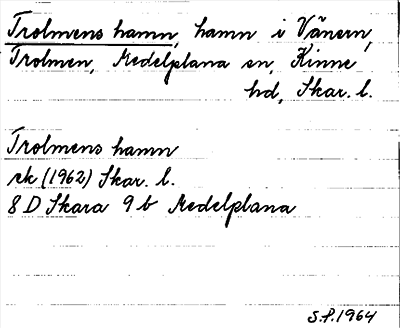 Trolmens hamn, hamn i Vänern,
Trolmen, Medelplana sn, Kinne
hd, Skar. l.
Trolmens hamn
rk (1962) Skar. l.
8 D Skara 9 b Medelplana
S.P. 1964